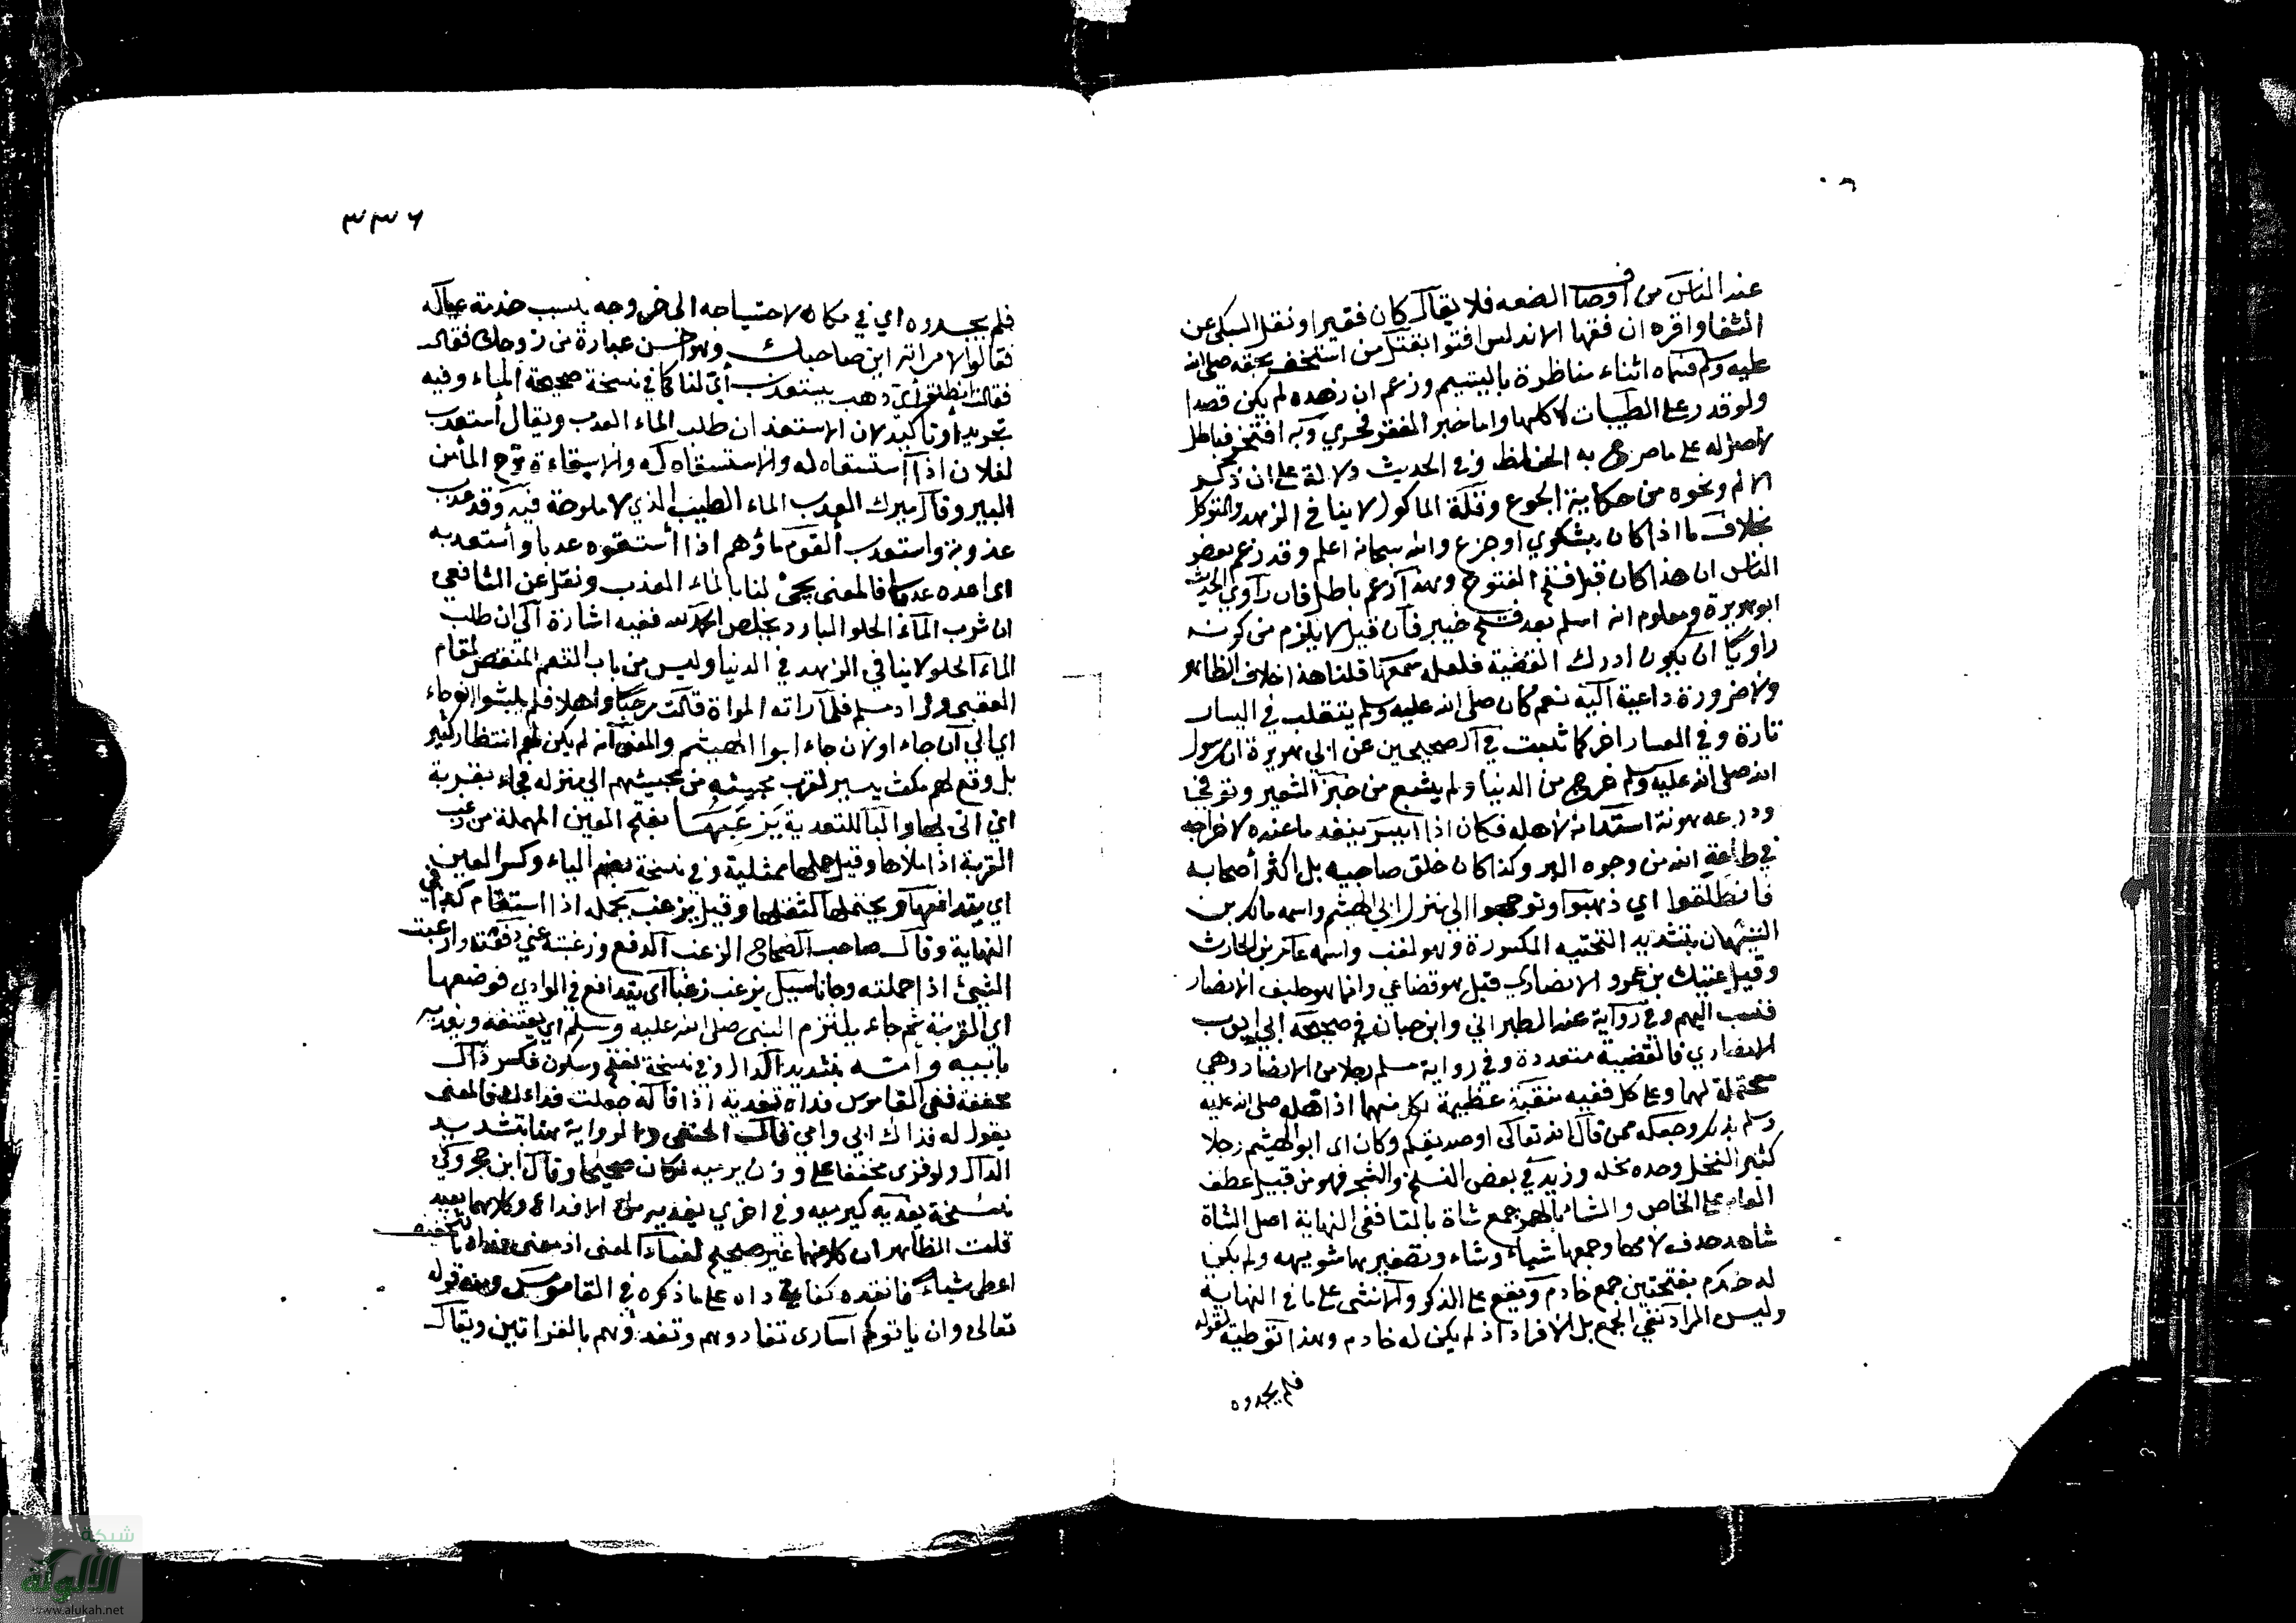 عند الناس من اوصاف الضعه فلا يقال كان فقيرا ونقل السبكي عن
الشفا واقره ان فقها الاندلس افتوا بقتل من استخف بحقه صلى الله
عليه وسلم فسماه اثناء مناظرة باليتيم وزعم ان زهده لم يكن قصدا
ولو قدر على الطيبات لاكلها واما خبر الفقر فخري وبه افتخر فباطل
لا اصل له على ما صرح به الحفاظ وفي الحديث دلالة على ان ذكر
الالم ونحوه من حكاية الجوع وقلة الماكول لا ينافي الزهد والتوكل
بخلاف ما اذا كان بشكوي او جزع والله سبحانه اعلم وقد زعم بعض
الناس ان هذا كان قبل فتح الفتوح وهذا زعم باطل فان راوي الحديث
ابو هريرة ومعلوم انه اسلم بعد فتح خيبر فان قيل لا يلزم من كونه
راويا ان يكون ادرك القضية فلعله سمعها قلنا هذا خلاف الظاهر
ولا ضرورة داعية اليه نعم كان صلى الله عليه وسلم يتقلب في اليسار
تارة وفي العسار اخر كما ثبت في الصحيحين عن ابي هريرة ان رسول
الله صلى الله عليه وسلم خرج من الدنيا ولم يشبع من خبز الشعير وتوفي
ودرعه مرهونة استدانه لاهله فكان اذا ايسر ينفد ما عنده لاخراجه
في طاعة الله من وجوه البر وكذا كان خلق صاحبيه بل اكثر أصحابه
فانطلقوا اي ذهبوا وتوجهوا الى منزل ابي الهيثم واسمه مالك بن
التيهان بتشديد التحتيه المكسورة وهو لقب واسمه عامر بن الحارث
وقيل عتيك بن عمرو الانصاري قيل هو قضاعي وانما هو حليف الانصار
فنسب اليهم وفي رواية عند الطبراني وابن حبان في صحيحه ابي ايوب
الانصاري فالقضية متعددة وفي رواية مسلم رجلا من الانصار وهي
محتملة لهما وعلى كل ففيه منقبة عظيمة لكل منهما اذ اهله صلى الله عليه
وسلم بذلك وجعله ممن قال الله تعالى او صديقكم وكان اى ابو الهيثم رجلا
كثير النخل وحده نخله وزيد في بعض النسخ والشجر فهو من قبيل عطف
العام على الخاص والشاء بالهمز جمع شاة بالتا ففي النهاية اصل الشاة
شاهه حدف لامها وجمعها شياه وشاء وتصغيرها شويهه ولم يكن
له خدم بفتحتين جمع خادم ويقع على الذكر والانثى على ما في النهاية
وليس المراد نفي الجمع بل الافراد اذ لم يكن له خادم وهذا توطية لقوله
فلم يجدوه
٣٣٦
فلم يجدوه اي في مكانه لاحتياجه الى خروجه بسبب خدمة عياله
فقالوا لامراته اين صاحبك وهو احسن عبارة من زوجك فقال
فقالت انطلق أى ذهب يستعذب أى لنا كما في نسخة صحيحة الماء وفيه
تجريد أو تأكيد لان الاستعذاب طلب الماء العذب ويقال أستعذب
لفلان اذا استسقاه له والاستسقاه له والاستقاءة نزح الما من
البير وقال ميرك العدب الماء الطيب الذي لا ملوحة فيه وقد عدب
عذوبة واستعدب القوم ماؤهم اذا أستقوه عدبا وأستعدبه
اى اعده عدبا فالمعنى يجئ لنا بالماء العذب ونقل عن الشافعي
ان شرب الماء الحلو البارد يخلص الحمد لله ففيه اشارة الى ان طلب
الماء الحلو لا ينافي الزهد في الدنيا وليس من باب التنعم المنقص لمقام
العقبى وزاد مسلم فلما راته المراة قالت مرحبا واهلا فلم يلبثوا ان جاء
اي الى ان جاء او لان جاء ابوا الهيثم والمعنى انه لم يكن لهم انتظار كثير
بل وقع لهم مكث يسير لقرب مجيئه من مجيئهم الي منزله فجاء بقربة
اي اتى بها والبا للتعدية يَزعَبُهَا بفتح العين المهملة من زعب
القربة اذا ملأها وقيل حملها ممتلية وفي نسخة بضم الياء وكسر العين
اي يتدافعها ويحتملها لثقلها وقيل يزعب بحمله اذا استقام كذا في
النهاية وقال صاحب الصحاح الزعب الدفع وزعبته عني دفعته وازعبت
الشئ اذا حملته وجانا سيل يزعب زعبا اى يتدافع في الوادي فوضعها
اي القربة ثم جاء يلتزم النبى صلى الله عليه وسلم اي يعتنقه ويفديه
بابيه وامه بتشديد الدال وفي نسخة بفتح وسكون فكسر دال
مخففة ففي القاموس فداه تفدية اذا قال له جعلت فداءك فالمعنى
يقول له فداك ابي وامي قال الحنفى والرواية هنا بتشديد
الدال ولو قرئ مخففا على وزن يرميه لكان صحيحا وقال ابن حجر وفي
نسخة يفديه كيرميه وفي اخري يفديه من الافداء وكلاهما بعيد
قلت الظاهر ان كلا منهما غير صحيح لفساد المعنى اذ معنى فداه بالتخفيف
اعطى شيئا فانقده كفاداه على ما ذكره في القاموس ومنه قوله
تعالى وان ياتوكم اسارى تفادوهم وتفدوهم بالقراتين ويقال
شبكة
الألوكة
www.alukah.net